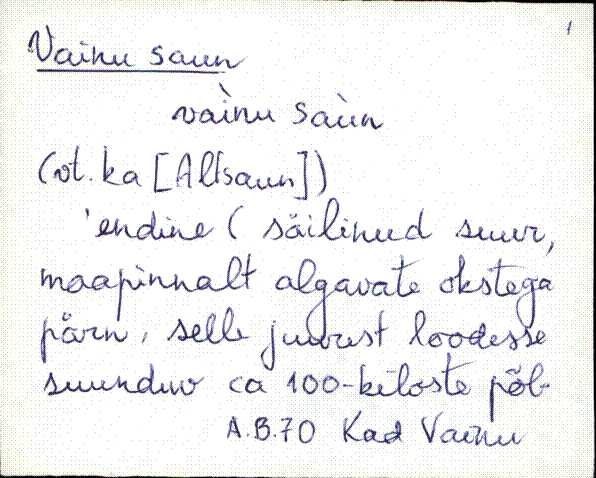 1
Vainu saun
vàinu saùn
(vt. ka [Altsaun])
'endine (säilinud suur,
maapinnalt algavate okstega
pärn, selle juurest loodesse
suunduv ca 100-kiloste põl-
A.B.70 Kad Vainu